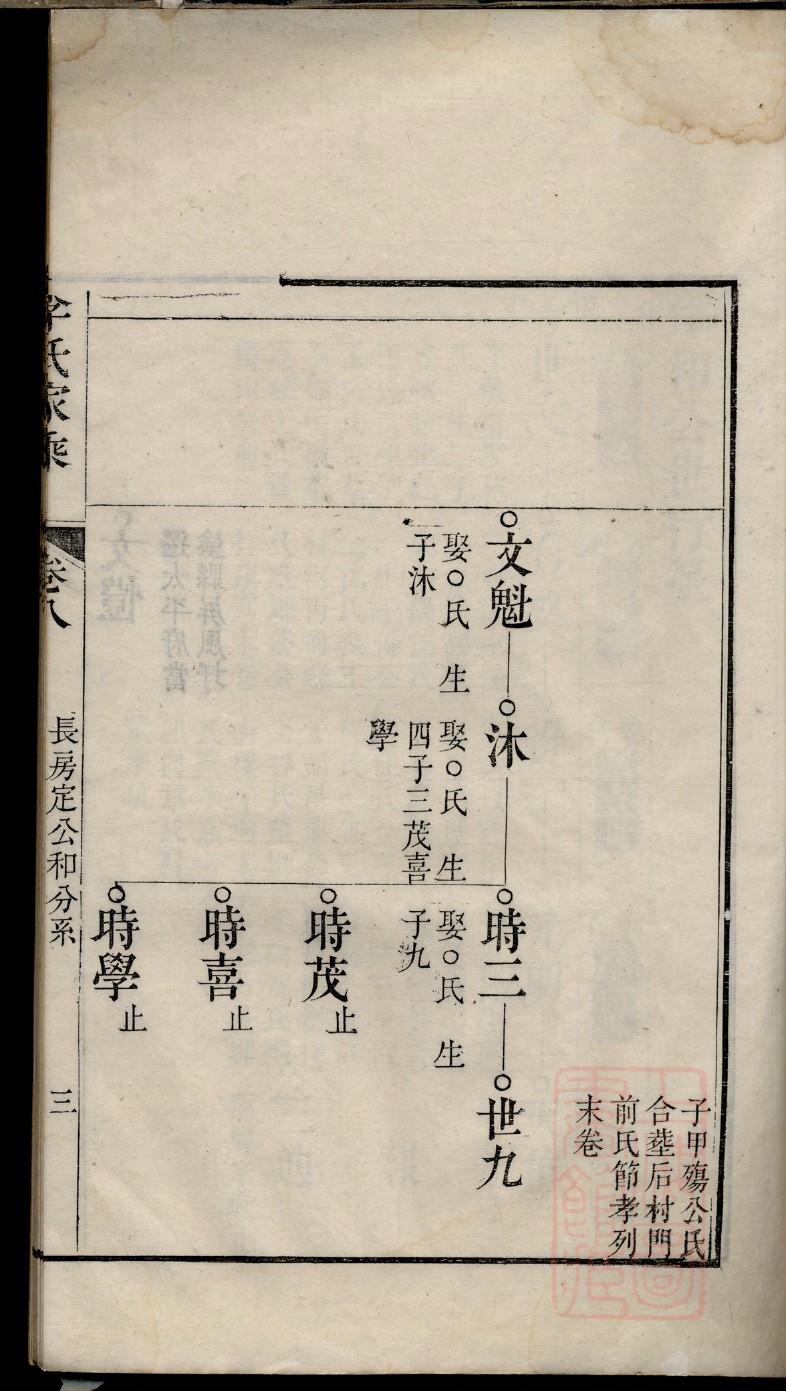 子甲殤公氏
合塟后村門
前氏節孝列
末卷
文魁
娶○氏 生
子沐
沐
娶○氏 生
四子三茂喜
學
時三
娶○氏 生
子九
世九
時茂
止
時喜
止
時學
止
李氏家乘
卷八
長房定公和分系
三